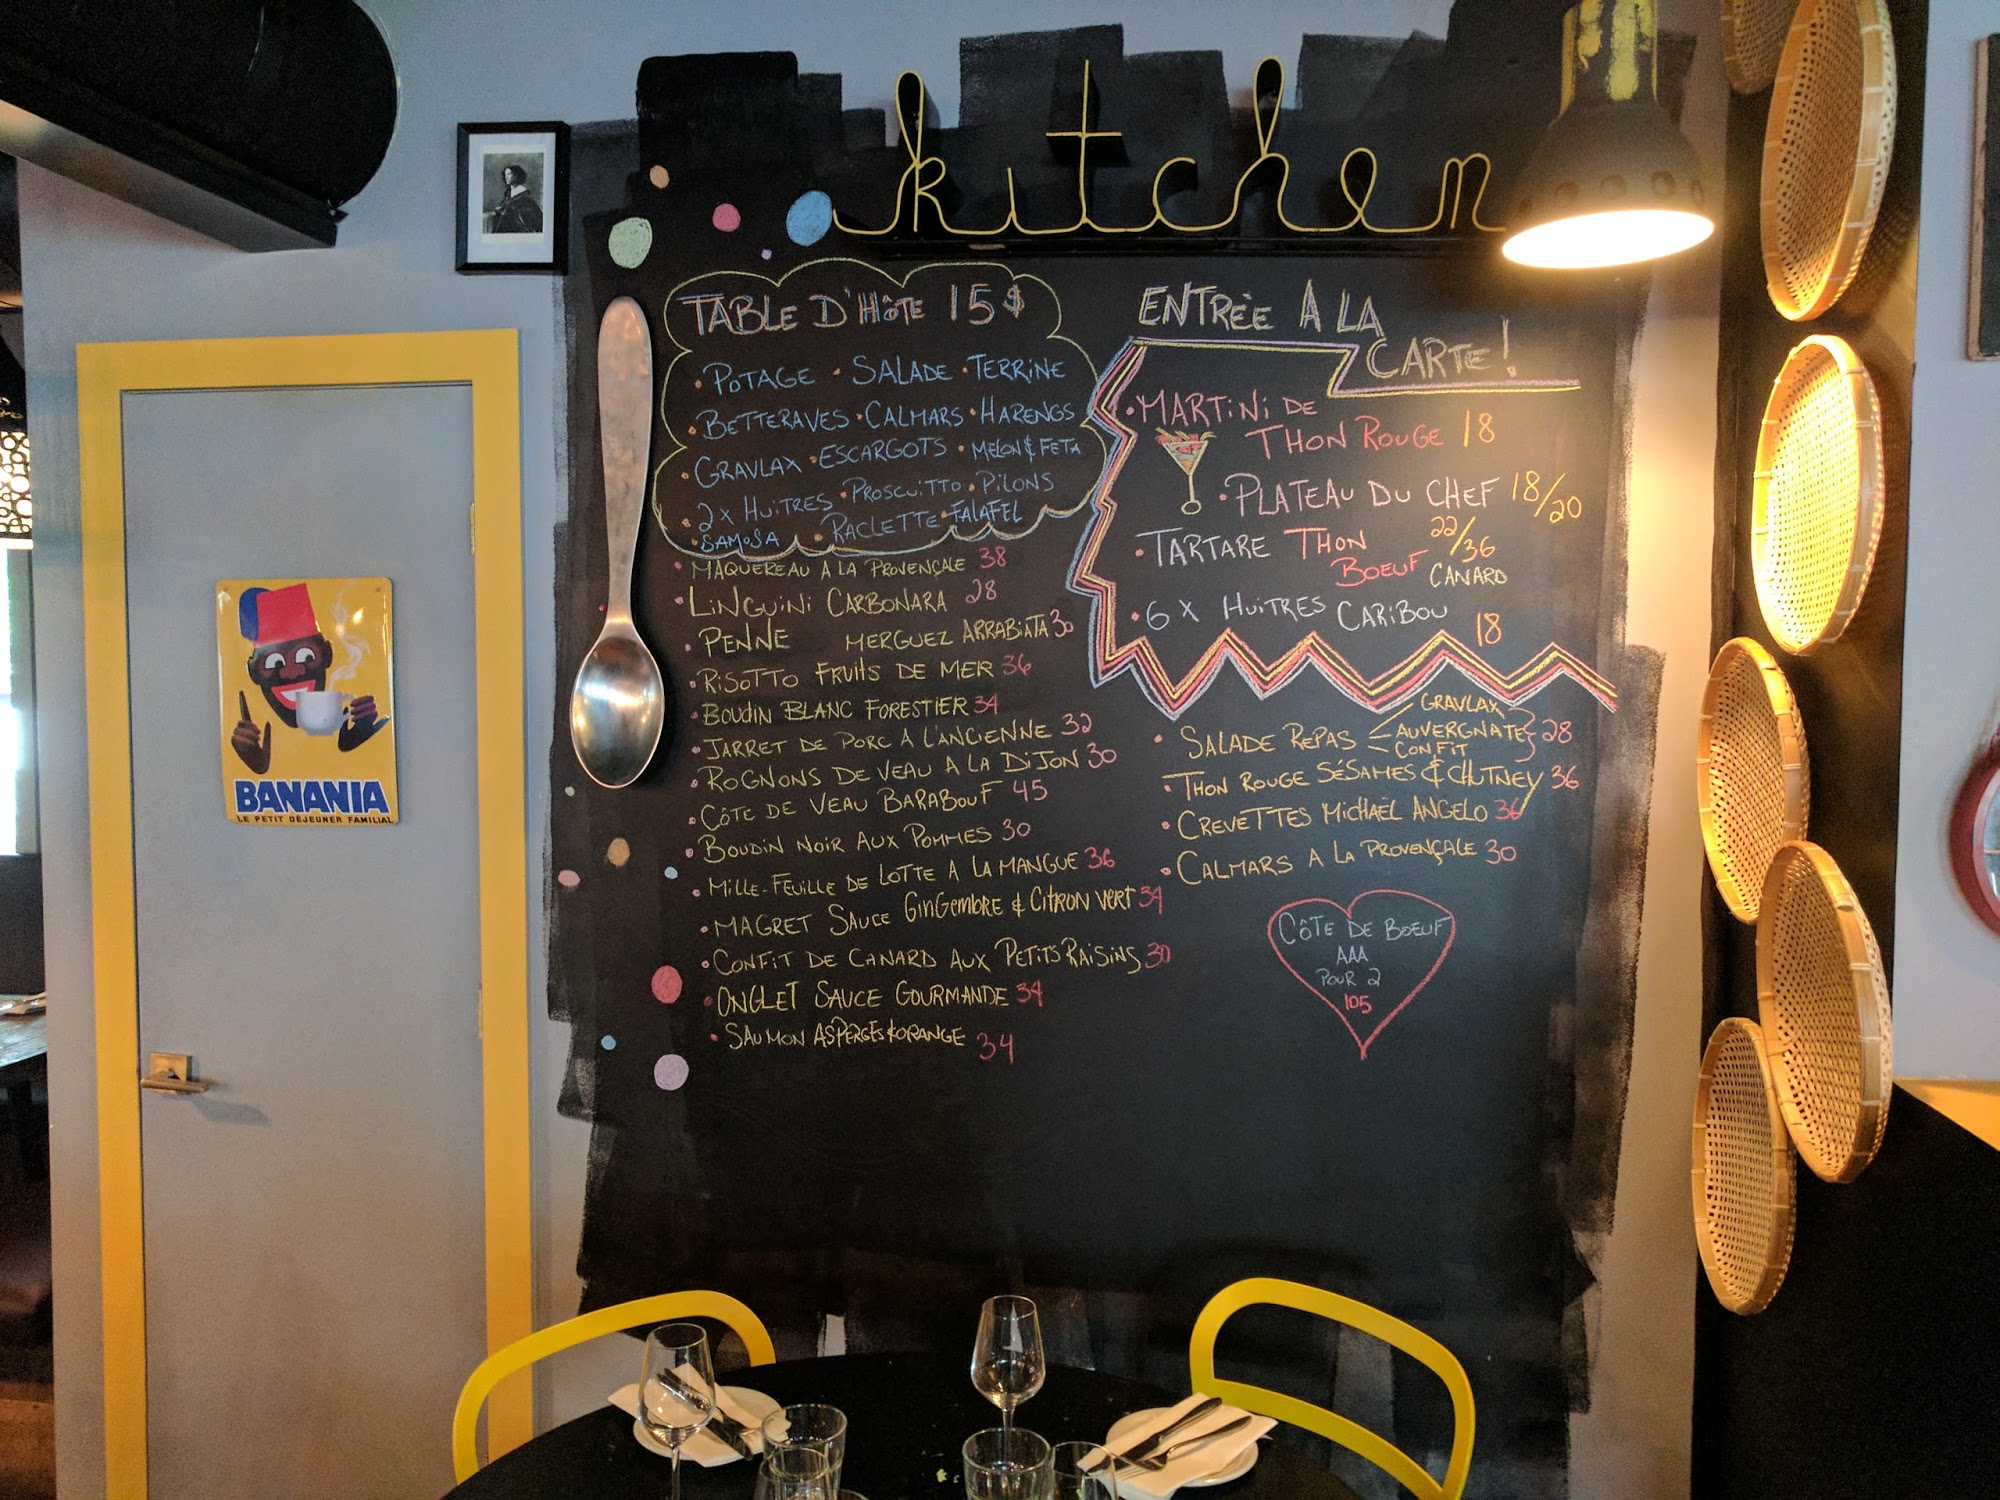 kitchen
TABLE D'HÔTE 15$
• POTAGE • SALADE • TERRINE
• BETTERAVES • CALMARS • HARENGS
• GRAVLAX • ESCARGOTS • MELON & FETA
• 2 x HUITRES • PROSCUITTO • PILONS
• SAMOSA • RACLETTE • FALAFEL
• MAQUEREAU A LA PROVENÇALE 38
• LINGUINI CARBONARA 28
• PENNE MERGUEZ ARRABIATA 30
• RISOTTO FRUITS DE MER 36
• BOUDIN BLANC FORESTIER 34
• JARRET DE PORC A L'ANCIENNE 32
• ROGNONS DE VEAU A LA DIJON 30
• CÔTE DE VEAU BARABOUF 45
• BOUDIN NOIR AUX POMMES 30
• MILLE-FEUILLE DE LOTTE A LA MANGUE 36
• MAGRET SAUCE GINGEMBRE & CITRON VERT 34
• CONFIT DE CANARD AUX PETITS RAISINS 30
• ONGLET SAUCE GOURMANDE 34
• SAUMON ASPERGES & ORANGE 34
ENTRÈE A LA
CARTE!
• MARTINI DE
THON ROUGE 18
• PLATEAU DU CHEF 18/20
• TARTARE THON 22/36
BOEUF CANARD
• 6 X HUITRES CARIBOU 18
GRAVLAX
• SALADE REPAS AUVERGNATE 28
CONFIT
• THON ROUGE SÉSAMES & CHUTNEY 36
• CREVETTES MICHAËL ANGELO 36
• CALMARS A LA PROVENÇALE 30
CÔTE DE BOEUF
AAA
POUR 2
105
BANANIA
LE PETIT DÉJEUNER FAMILIAL